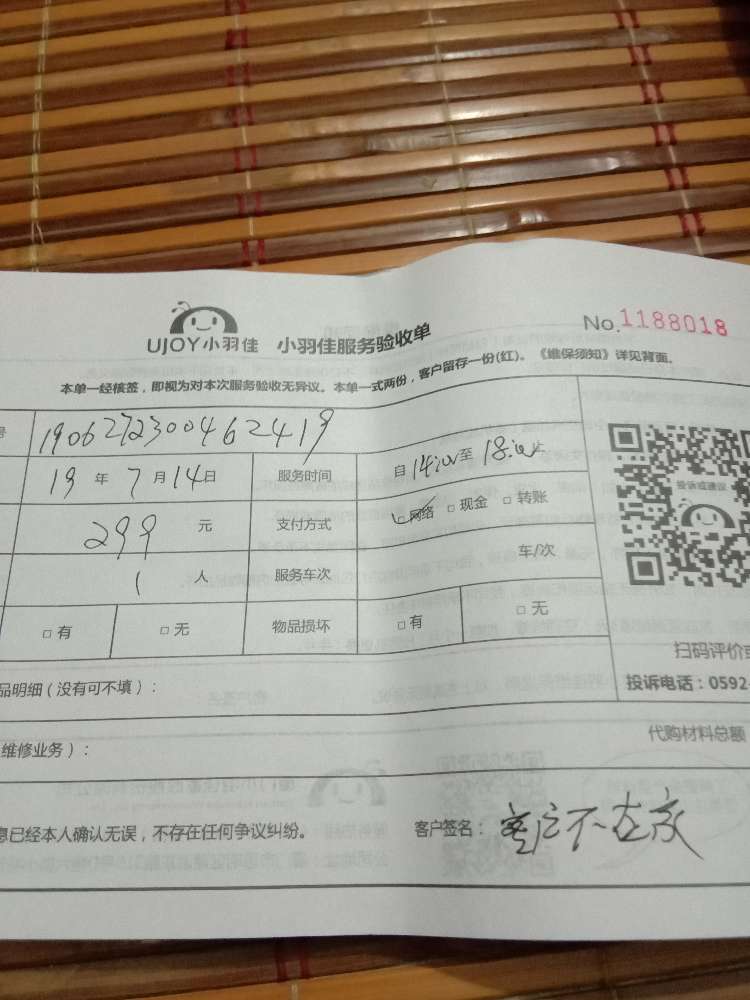 UJOY小羽佳 小羽佳服务验收单 No.1188018
本单一经核签，即视为对本次服务验收无异议。本单一式两份，客户留存一份(红)。《维保须知》详见背面。
号 190627230046 2419
19 年 7 月 14 日 服务时间 自 14:00 至 18:00
投诉或建议
299 元 支付方式 □网络 □现金 □转账
1 人 服务车次 车/次
□有 □无 物品损坏 □有 □无
扫码评价或
品明细（没有可不填）： 投诉电话：0592-
维修业务）： 代购材料总额
息已经本人确认无误，不存在任何争议纠纷。 客户签名：客户不在家